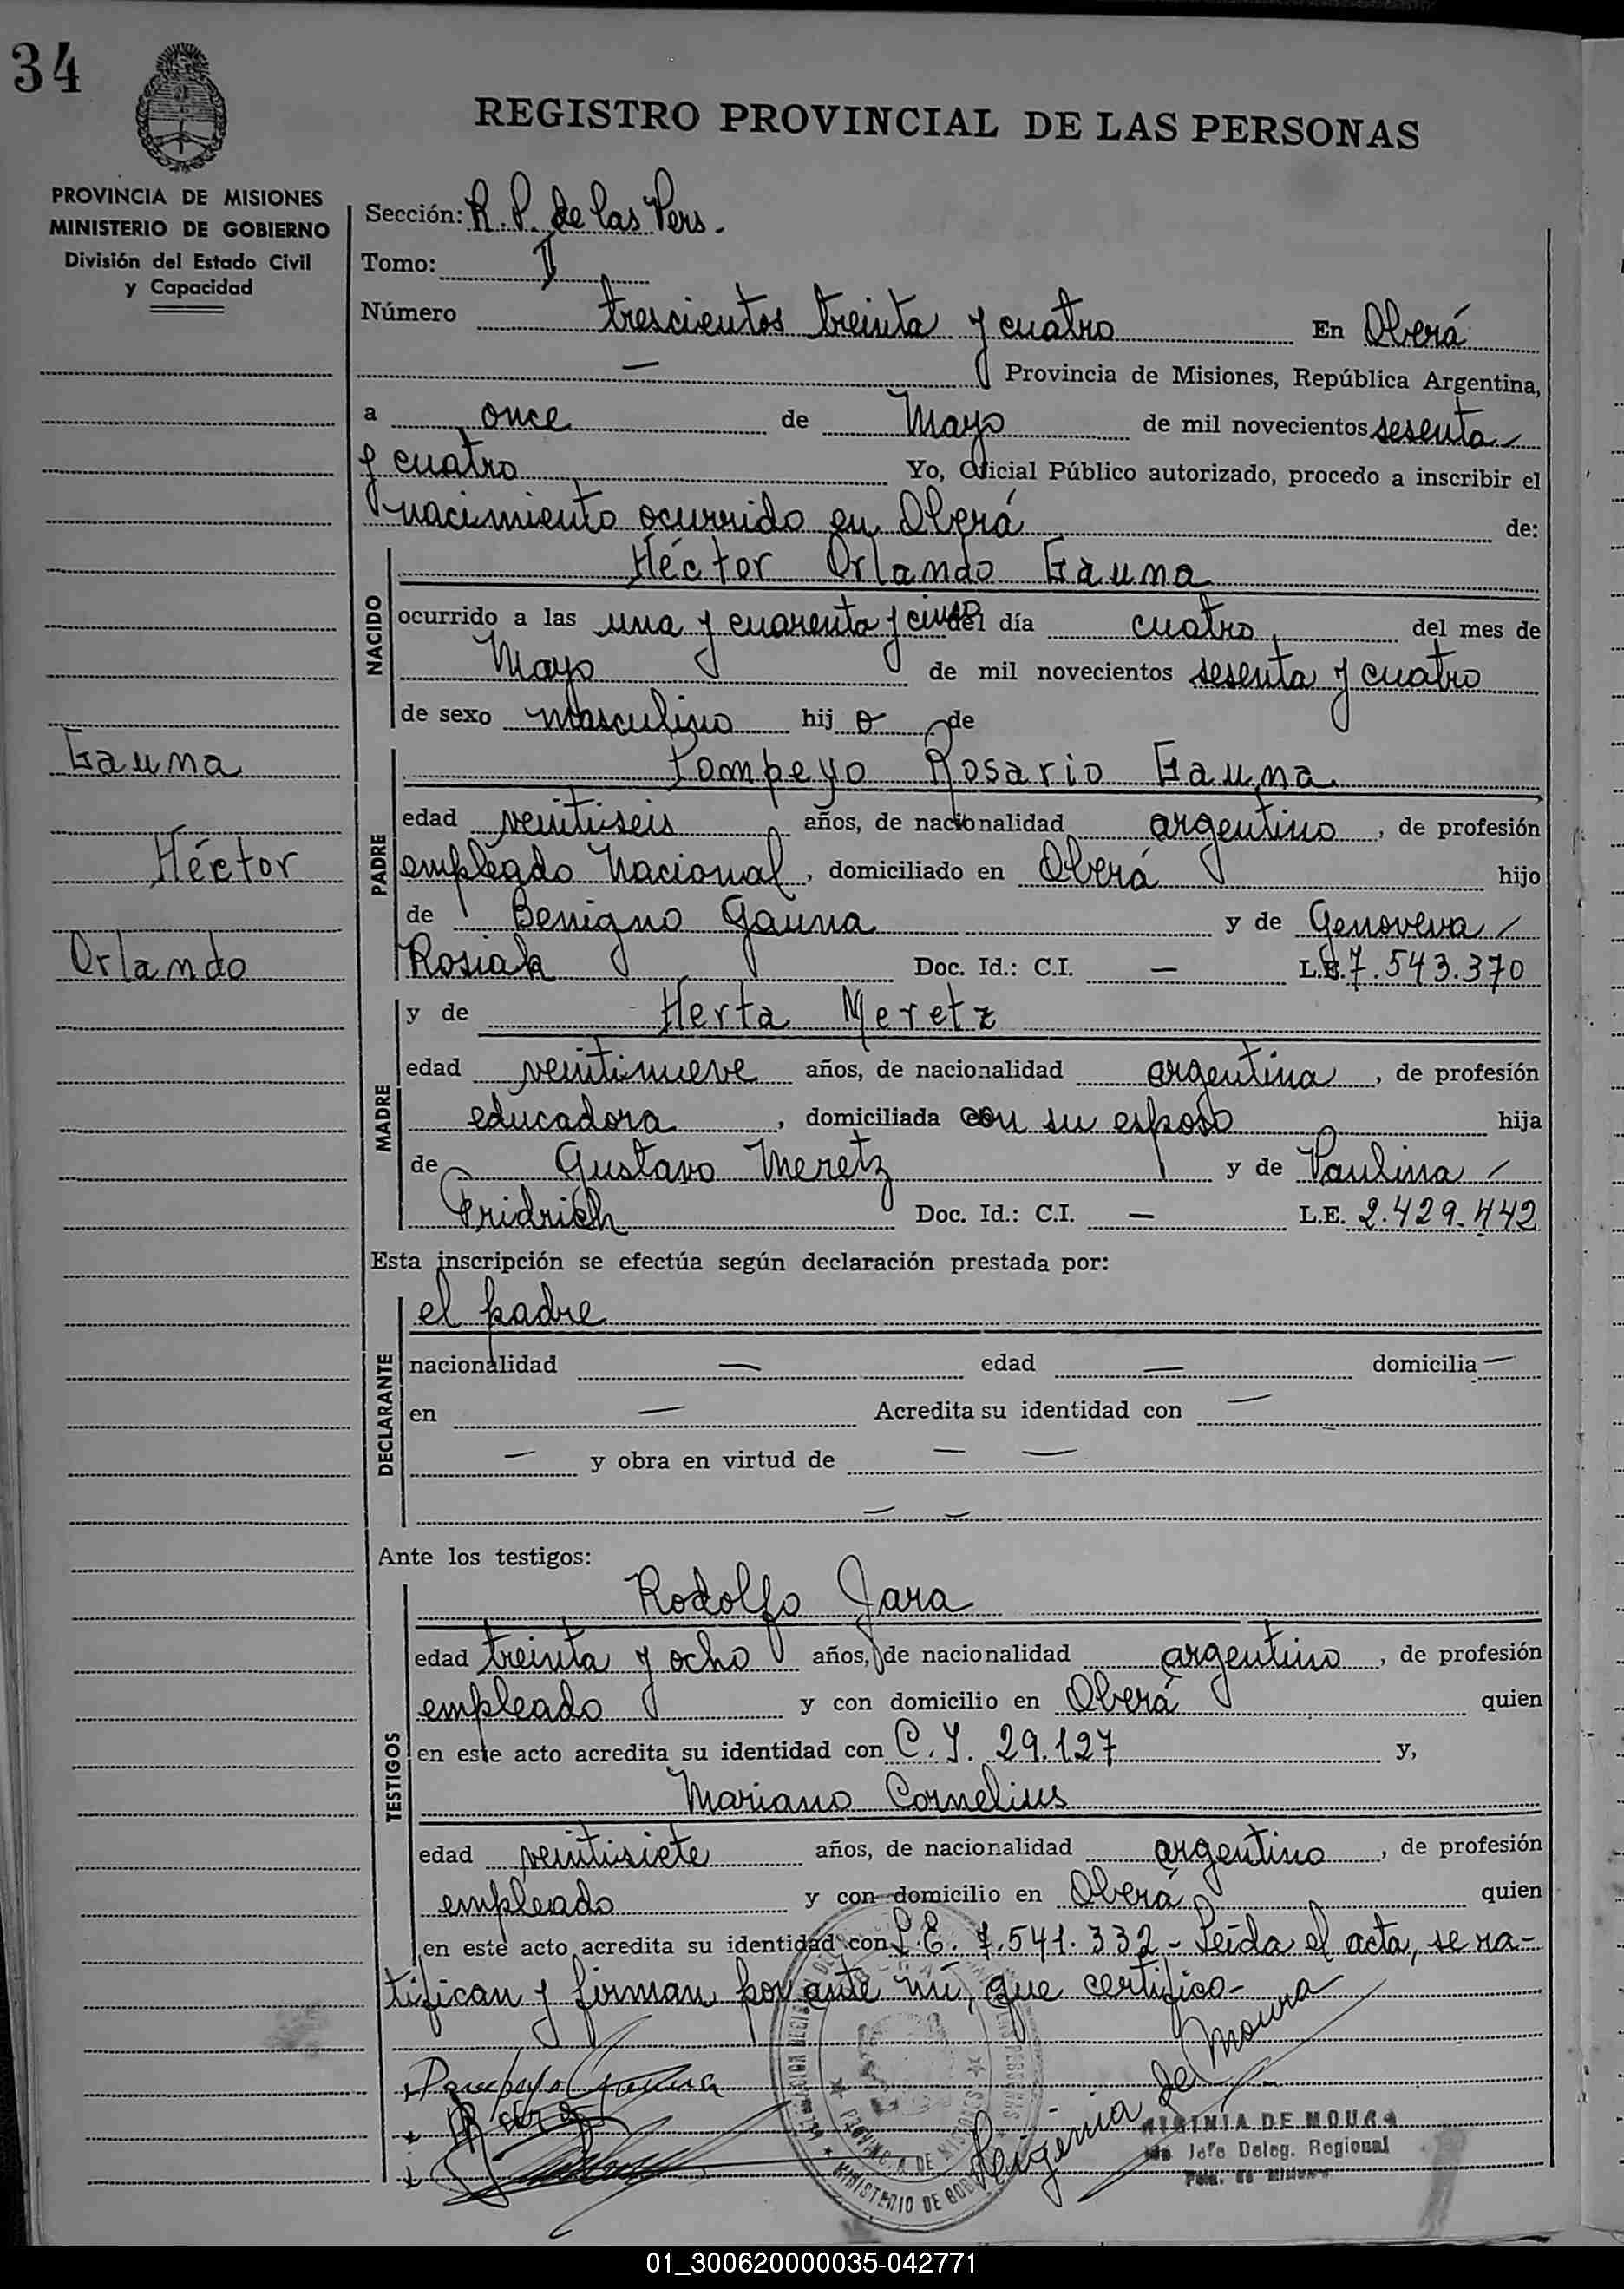 34
REGISTRO PROVINCIAL DE LAS PERSONAS
PROVINCIA DE MISIONES
MINISTERIO DE GOBIERNO
División del Estado Civil
y Capacidad
Sección: R. P. de las Pers.
Tomo: II
Número trescientos treinta y cuatro En Oberá
— Provincia de Misiones, República Argentina,
a once de Mayo de mil novecientos sesenta
y cuatro Yo, Oficial Público autorizado, procedo a inscribir el
nacimiento ocurrido en Oberá de:
NACIDO
Héctor Orlando Gauna
ocurrido a las una y cuarenta y cinco del día cuatro del mes de
Mayo de mil novecientos sesenta y cuatro
de sexo masculino hij o de
Gauna
Héctor
Orlando
PADRE
Pompeyo Rosario Gauna
edad veintiseis años, de nacionalidad argentino, de profesión
empleado Nacional, domiciliado en Oberá hijo
de Benigno Gauna y de Genoveva
Rosiak Doc. Id.: C.I. — L.E. 7.543.370
MADRE
y de Herta Meretz
edad veintinueve años, de nacionalidad argentina, de profesión
educadora, domiciliada con su esposo hija
de Gustavo Meretz y de Paulina
Fridrich Doc. Id.: C.I. — L.E. 2.429.442
Esta inscripción se efectúa según declaración prestada por:
DECLARANTE
el padre
nacionalidad — edad — domicilia —
en — Acredita su identidad con —
— y obra en virtud de — —
— —
Ante los testigos:
TESTIGOS
Rodolfo Jara
edad treinta y ocho años, de nacionalidad argentino, de profesión
empleado y con domicilio en Oberá quien
en este acto acredita su identidad con C. I. 29.127 y,
Mariano Cornelius
edad veintisiete años, de nacionalidad argentino, de profesión
empleado y con domicilio en Oberá quien
en este acto acredita su identidad con L. E. 7.541.332 - Leída el acta, se ra-
tifican y firman por ante mí, que certifico-
Pompeyo Gauna
Ifigenia de Moura
IFIGINIA DE MOURA
Jefe Deleg. Regional
PROVINCIA DE MISIONES
MINISTERIO DE GOB
01_300620000035-042771